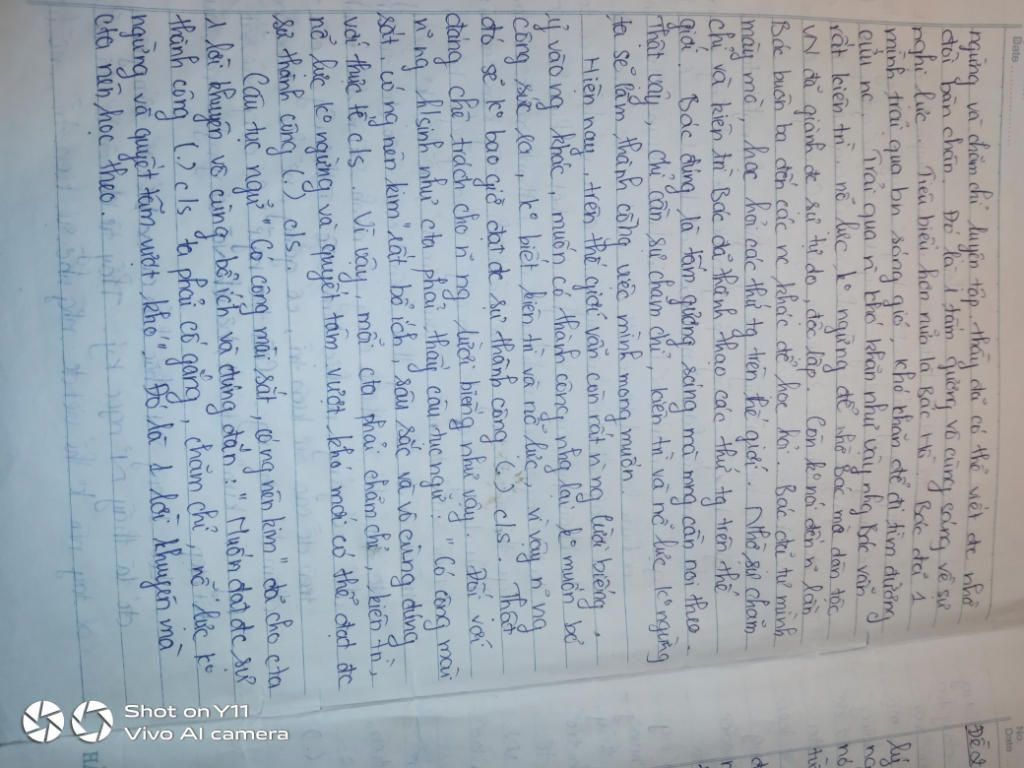 Date
ngừng và chăm chỉ luyện tập thầy đã có thể viết đc nhờ
đôi bàn chân. Đó là 1 tấm gương vô cùng sáng về sự
nghị lực. Tiêu biểu hơn nữa là Bác Hồ. Bác đã 1
mình trải qua bn sóng gió, khó khăn để đi tìm đường
cứu nc. Trải qua n` khó khăn như vậy nhg Bác vẫn
rất kiên trì, nỗ lực ko ngừng để nhờ Bác mà dân tộc
VN đã giành đc sự tự do, độc lập. Còn kể nói đến n` lần
Bác buôn ba đến các nc khác để học hỏi. Bác đã tự mình
mày mò, học hỏi các thứ tg trên thế giới. Nhờ sự chăm
chỉ và kiên trì Bác đã thành thạo các thứ tg trên thế
giới. Bác đúng là tấm gương sáng mà mng cần noi theo.
Thật vậy, chỉ cần sự chăm chỉ, kiên trì và nỗ lực ko ngừng
ta sẽ làm thành công việc mình mong muốn.
Hiện nay, trên thế giới vẫn còn rất n` ng lười biếng
ỷ vào ng khác, muốn có thành công nhg lại ko muốn bỏ
công sức ra, ko biết kiên trì và nỗ lực, vì vậy n~ ng
đó sẽ ko bao giờ đạt đc sự thành công (.) c/s. Thật
đáng chê trách cho n~ ng lười biếng như vậy. Đối với
n~ ng h/sinh như cta phải thấy câu tục ngữ: "Có công mài
sắt, có ng nên kim" rất bổ ích, sâu sắc và vô cùng đúng
với thực tế c/s. Vì vậy, mỗi cta phải chăm chỉ, kiên trì,
nỗ lực ko ngừng và quyết tâm vượt khó mới có thể đạt đc
sự thành công (.) c/s.
Câu tục ngữ "Có công mài sắt, có ng nên kim" đã cho cta
1 lời khuyên vô cùng bổ ích và đúng đắn: "Muốn đạt đc sự
thành công (.) c/s ta phải cố gắng, chăm chỉ, nỗ lực ko
ngừng và quyết tâm vượt khó". Đó là 1 lời khuyên mà
cta nên học theo.
No
Date
Đề 2
Shot on Y11
Vivo AI camera